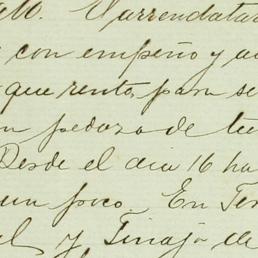 ato. El arrendatar
con empeño y a
que renta, para se
n pedazo de tie
Desde el dia 16 ha
un poco. En Ter
el y Tinaja de